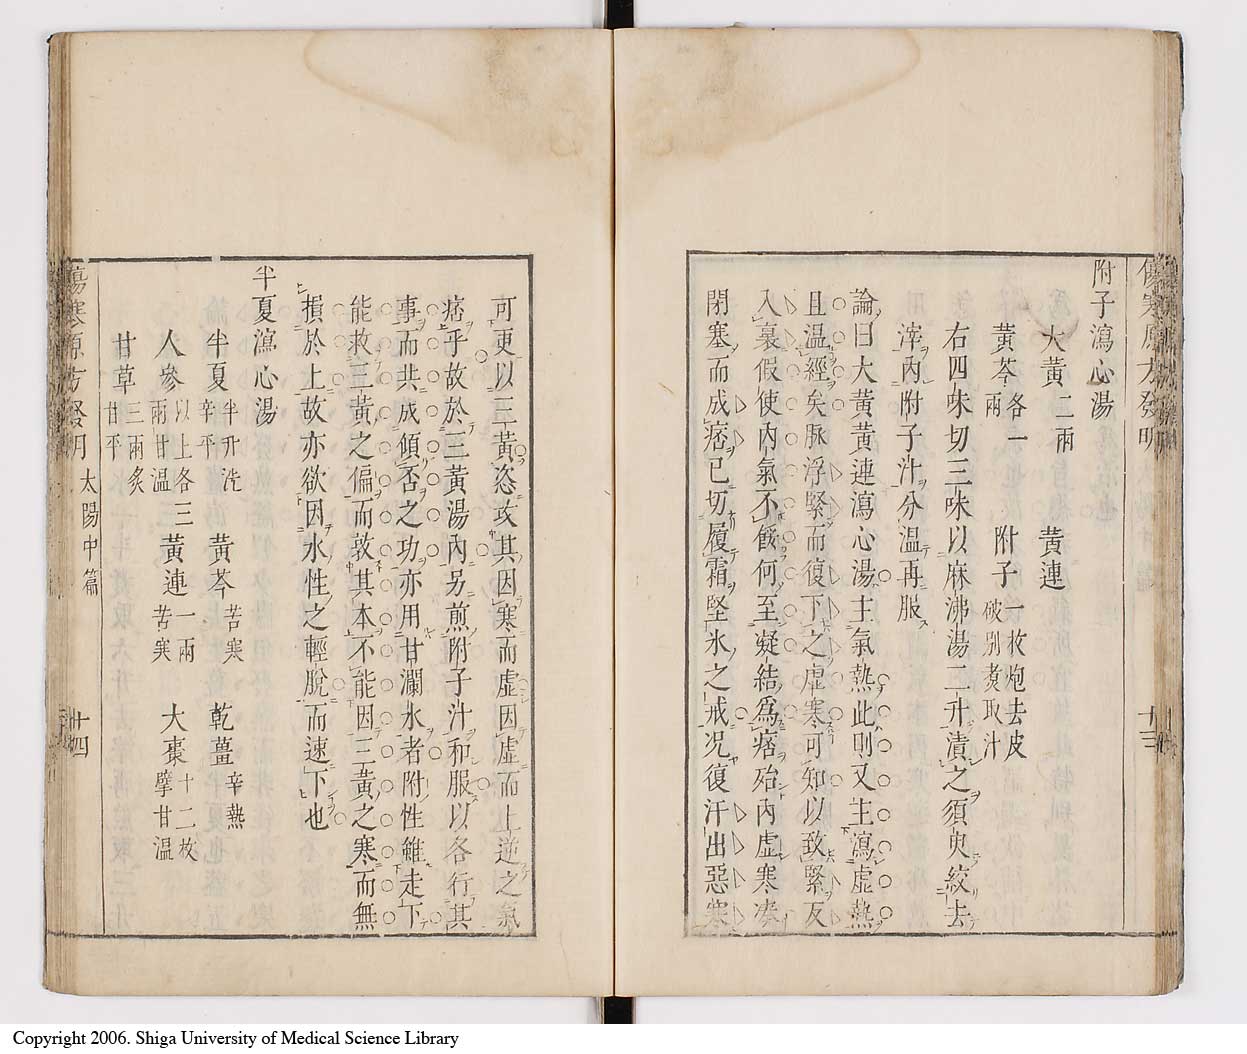 傷寒原方發明
十三
附子瀉心湯
大黃 二兩 黃連
黃芩 各一兩 附子 一枚炮去皮破別煑取汁
右四味切三味以麻沸湯二升漬之須臾絞去
滓內附子汁分温再服
論曰大黃黃連瀉心湯主氣熱此則又主瀉虛熱
且温經矣脉浮緊而復下之虛寒可知以致緊反
入裏假使內氣不餒何至凝結為痞殆內虛寒凑
閉塞而成痞已切履霜堅氷之戒况復汗出惡寒
可更以三黃恣攻其因寒而虛因虛而上逆之氣
痞乎故於三黃湯內另煎附子汁和服以各行其
事而共成傾否之功亦用甘瀾水者附性雖走下
能救三黃之偏而敦其本不能因三黃之寒而無
損於上故亦欲因水性之輕脫而速下也
半夏瀉心湯
半夏 半升洗辛平 黃芩 苦寒 乾薑 辛熱
人參 以上各三兩甘温 黃連 一兩苦寒 大棗 十二枚擘甘温
甘草 三兩炙甘平
傷寒原方發明 太陽中篇
十四
Copyright 2006. Shiga University of Medical Science Library